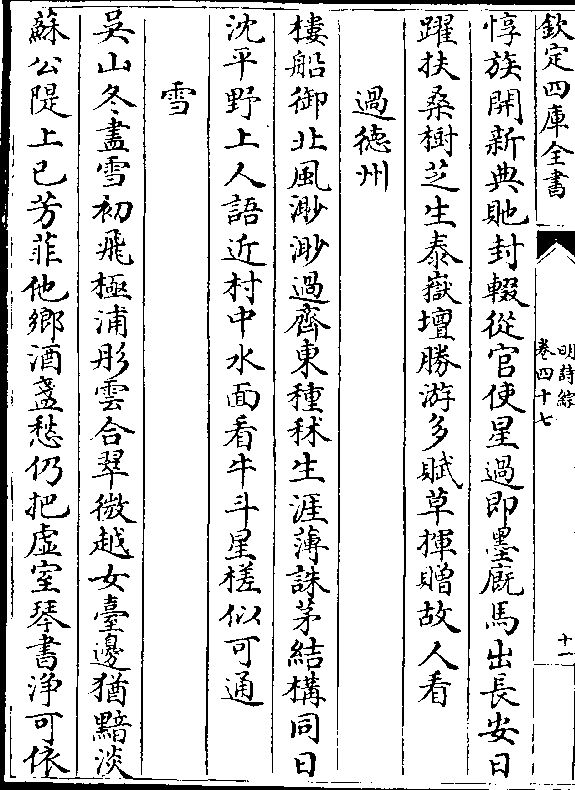 欽定四庫全書
明詩綜
卷四十七
十一
惇族開新典貤封輟從官使星過即墨廐馬出長安日
躍扶桑樹芝生泰嶽壇勝游多賦草揮贈故人看
過德州
樓船御北風渺渺過齊東種秫生涯薄誅茅結構同日
沈平野上人語近村中水面看牛斗星槎似可通
雪
吳山冬盡雪初飛極浦彤雲合翠微越女臺邊猶黯淡
蘇公隄上已芳菲他鄉酒盞愁仍把虛室琴書浄可依